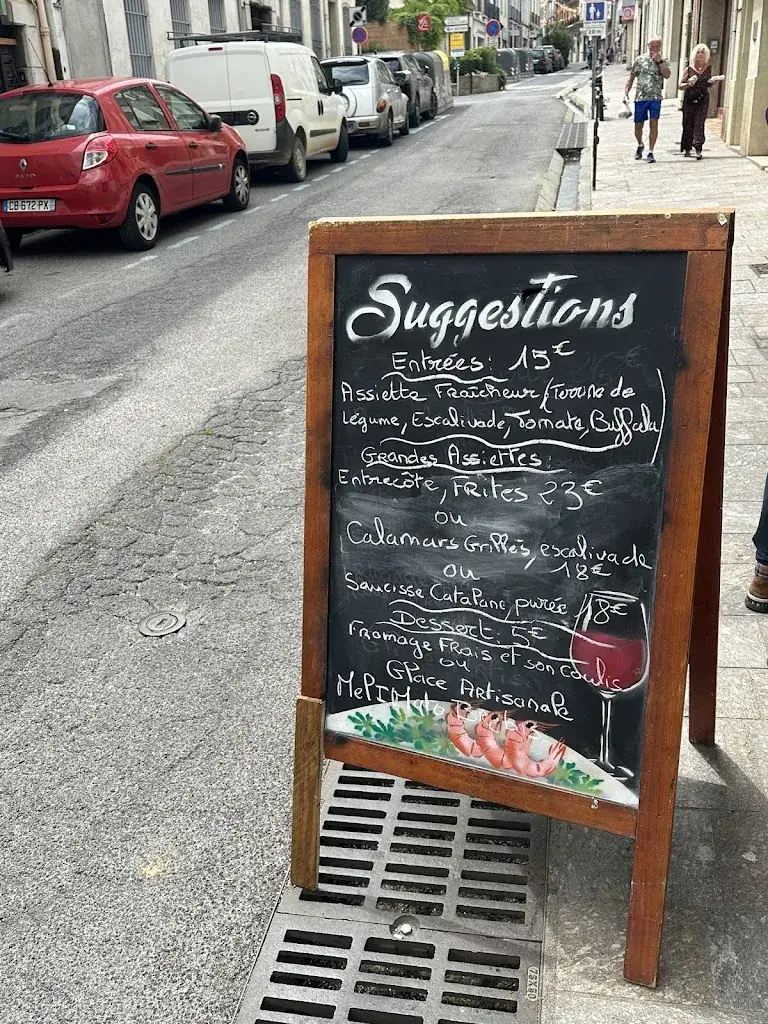 Suggestions
Entrées: 15€
Assiette Fraîcheur (Terrine de
légume, Escalivade, Tomate, Buffala
Grandes Assiettes:
Entrecôte, Frites 23€
ou
Calamars Grillés, escalivade
18€
ou
Saucisse Catalane, purée 18€
Dessert: 5€
Fromage Frais et son coulis
ou
Glace Artisanale
Mel I Mato
CB 672 PX
CLIO